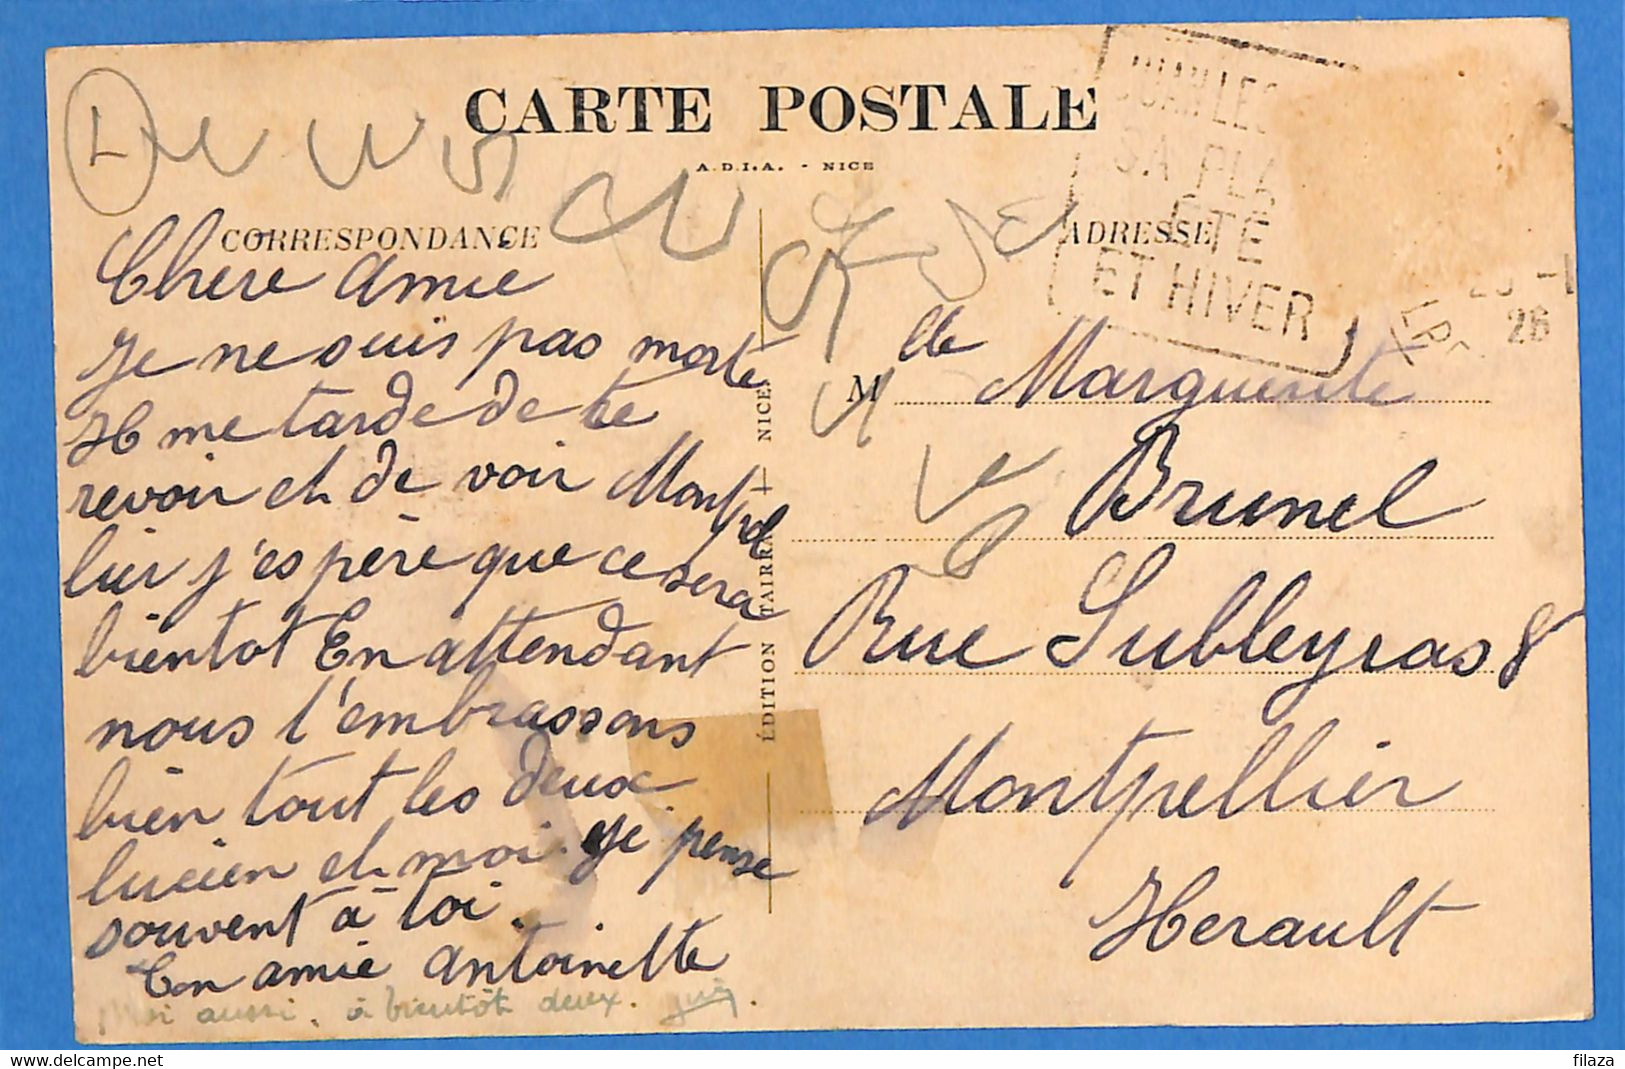 CARTE POSTALE
A.D.I.A. - NICE
CORRESPONDANCE
ADRESSE
L
JUAN LES
SA PLA
ETE
ET HIVER
26
Chere Amie
Je ne suis pas morte
Il me tarde de te
revoir et de voir Montpel
lier j'espère que ce sera
bientot En attendant
nous t'embrassons
bien tout les deux
lucien et moi. Je pense
souvent à toi.
Ton amie Antoinette
Moi aussi, à bientôt deux.
ÉDITION TAIRRAZ — NICE
Mlle Marguerite
Brunel
Rue Subleyras 8
Montpellier
Herault
Delcampe.net
filaza